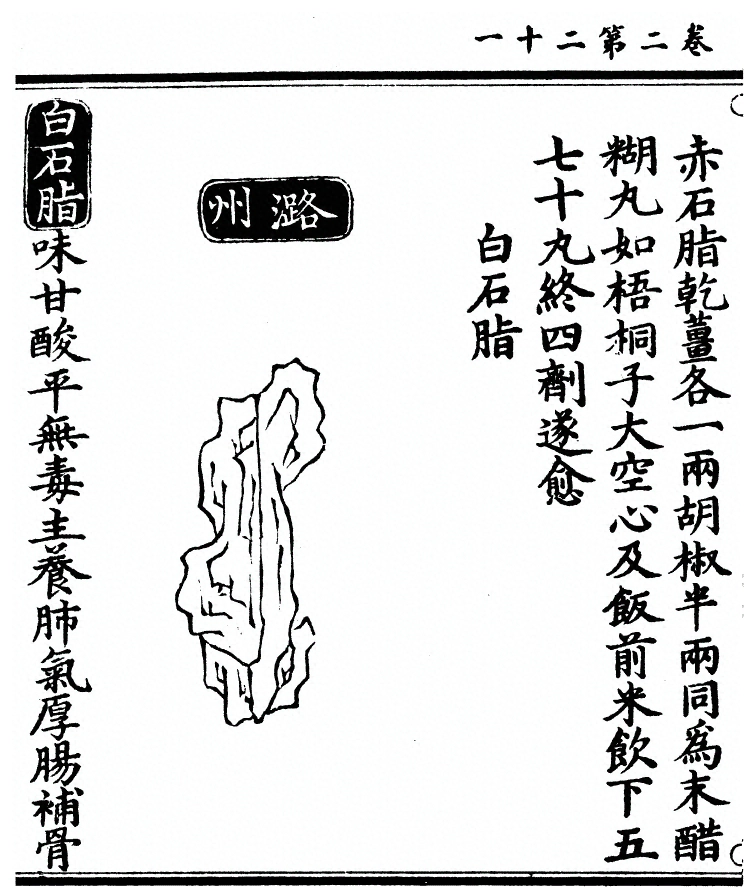 卷二第二十一
赤石脂乾薑各一兩胡椒半兩同爲末醋
糊丸如梧桐子大空心及飯前米飲下五
七十丸終四劑遂愈
白石脂
潞州
白石脂味甘酸平無毒主養肺氣厚腸補骨